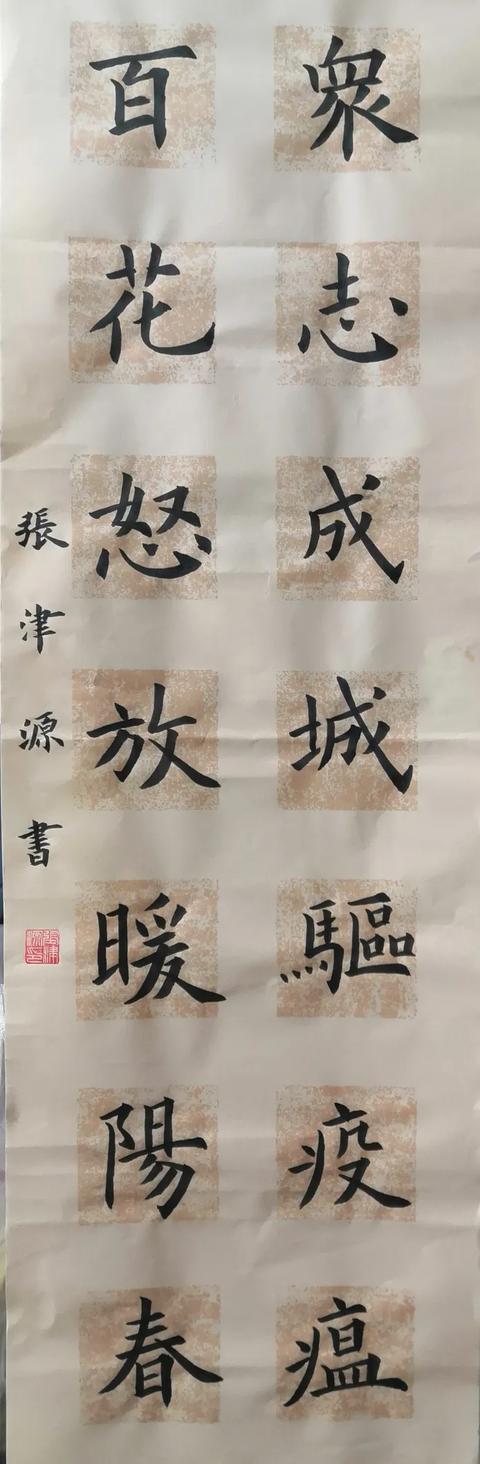 衆志成城驅疫瘟
百花怒放暖陽春
張津源書